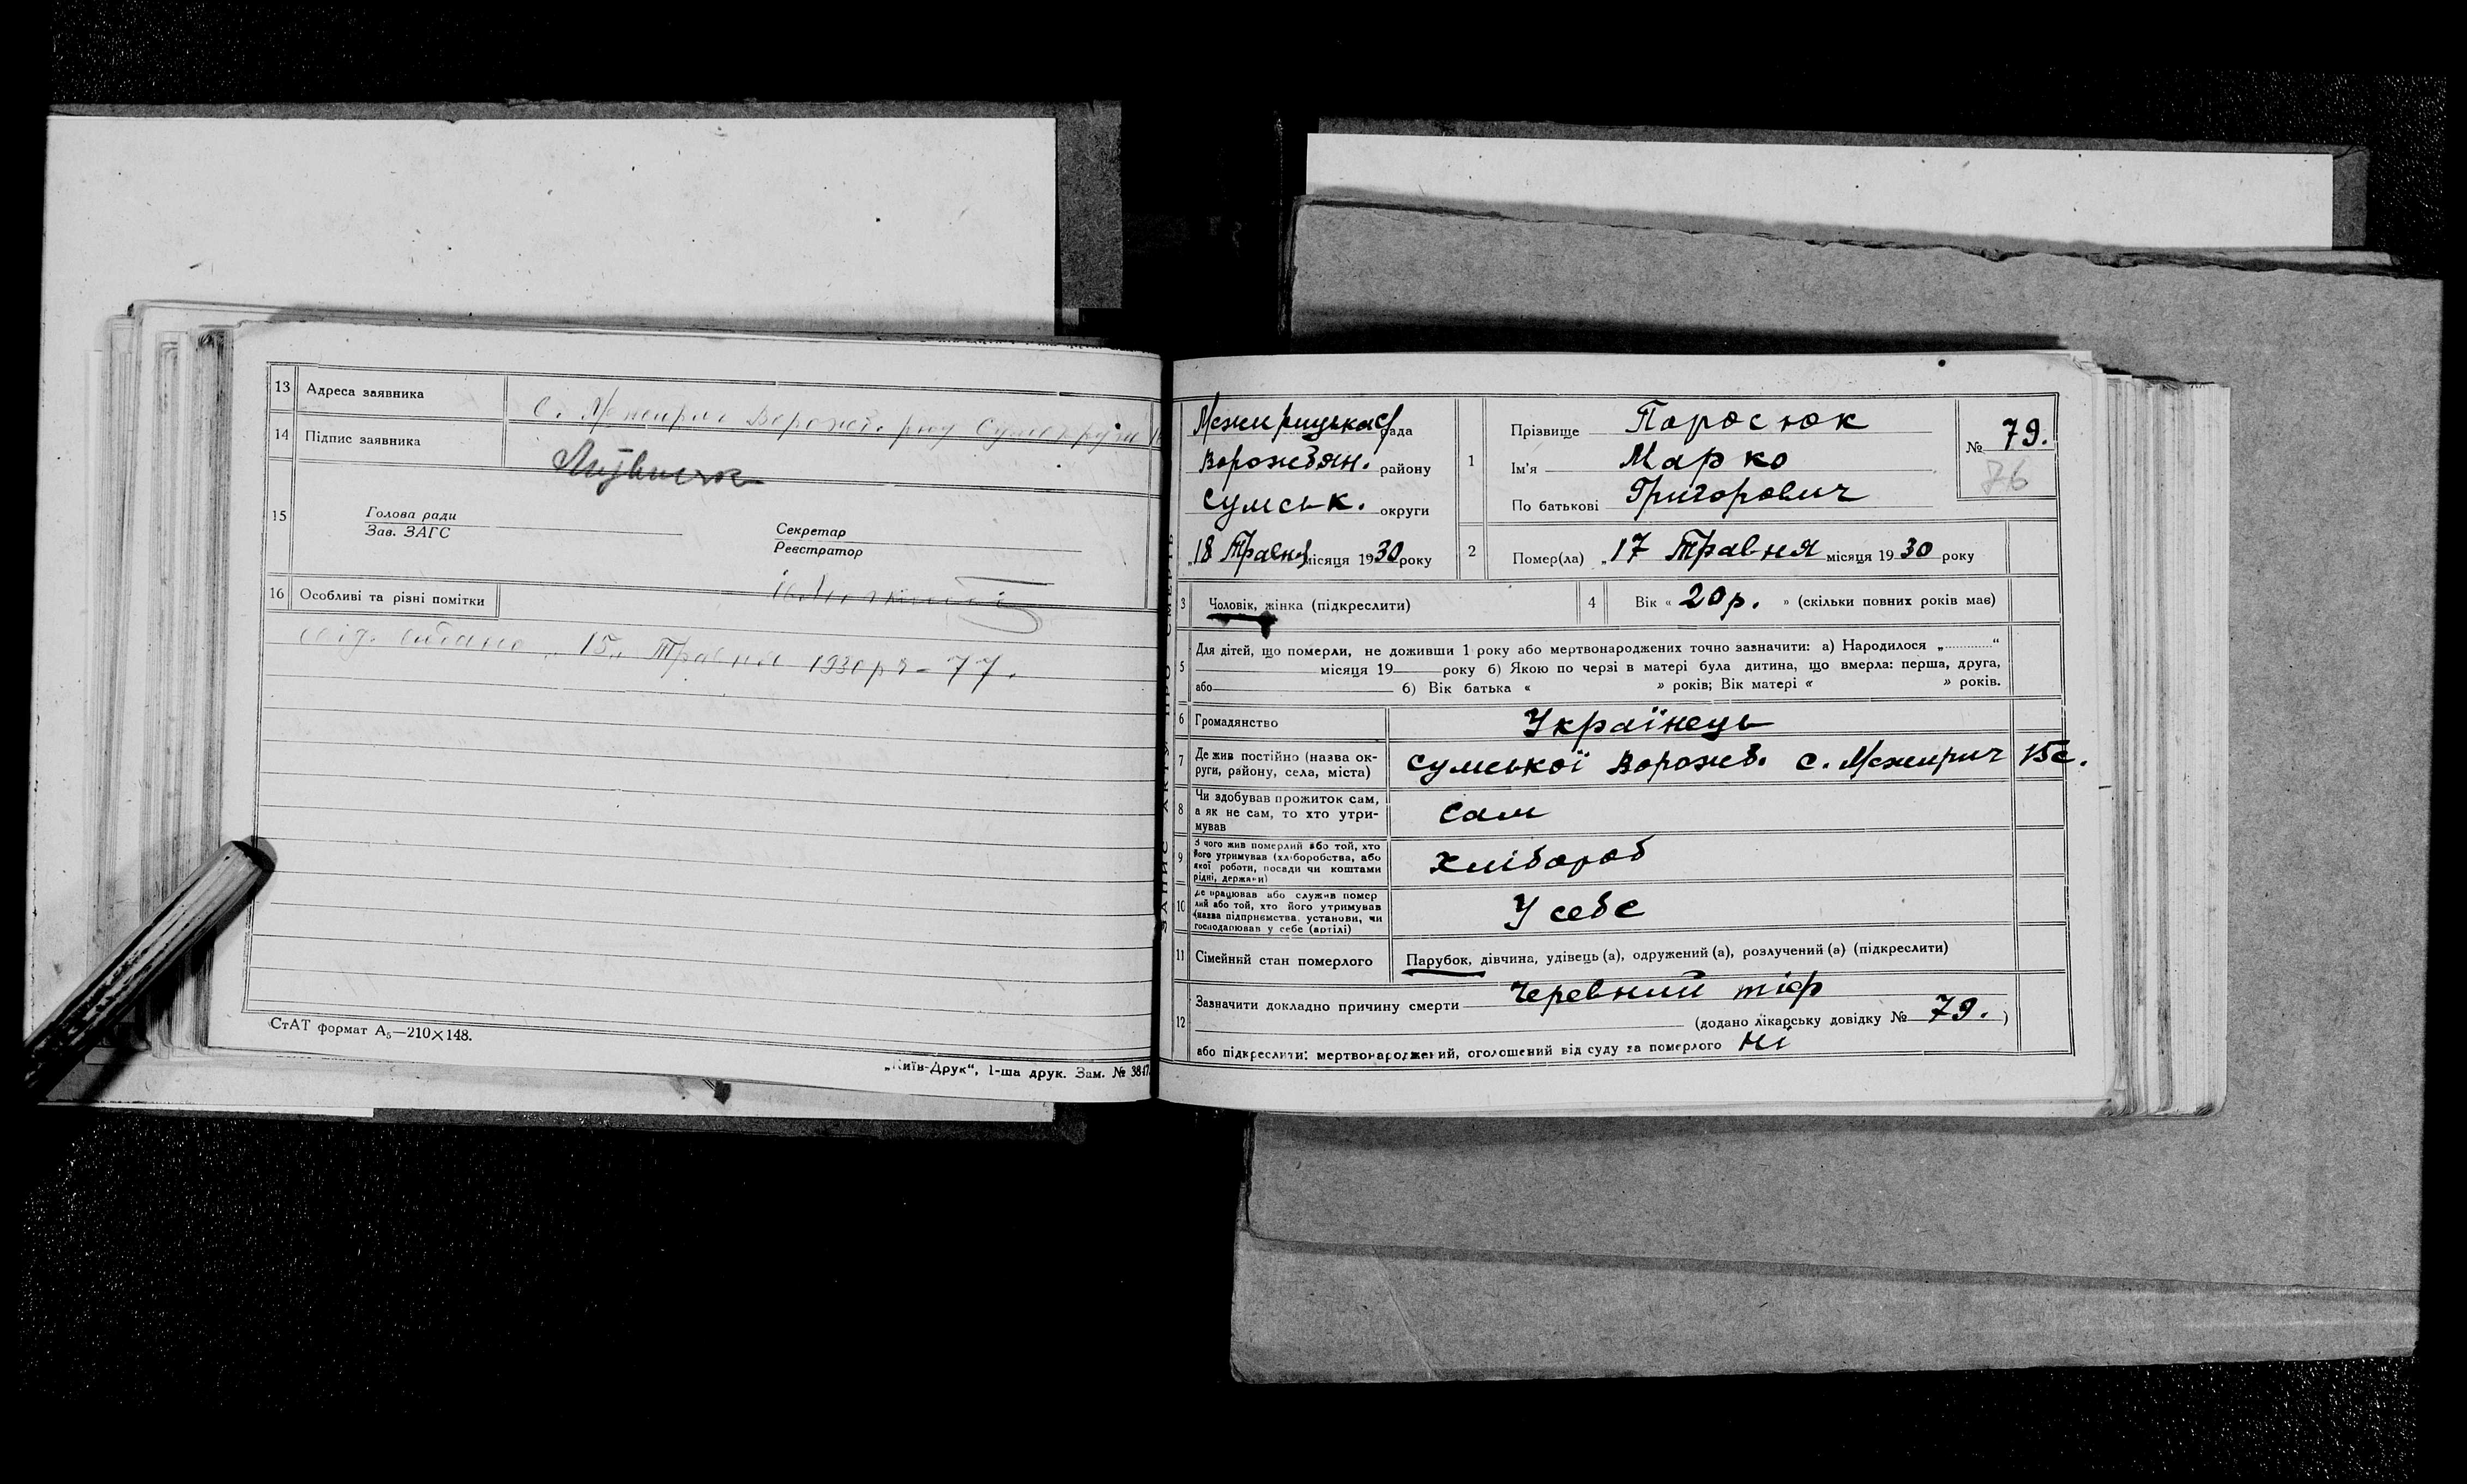 13 Адреса заявника с. Межирич Ворожб. р-ну Сумськ.
14 Підпис заявника
15 Голова ради
Зав. ЗАГС
Секретар
Реєстратор
16 Особливі та різні помітки
видано „15„ Травня 1930 р № 77.
СтАТ формат А₅—210×148.
„Київ-Друк“, 1-ша друк. Зам. № 3847
ЗАПИС АКТУ ПРО СМЕРТЬ
Межирицька с/рада
Ворожбян. району
Сумськ. округи
„18 Травня місяця 1930 року
1 Прізвище Паросюк
Ім'я Марко
По батькові Григорович
№ 79.
76
2 Помер(ла) „17 Травня місяця 1930 року
3 Чоловік, жінка (підкреслити)
4 Вік « 20 р. » (скільки повних років має)
5 Для дітей, що померли, не доживши 1 року або мертвонароджених точно зазначити: а) Народилося „ “
місяця 19 року б) Якою по черзі в матері була дитина, що вмерла: перша, друга,
або б) Вік батька « » років; Вік матері « » років.
6 Громадянство Українець
7 Де жив постійно (назва ок-
руги, району, села, міста) Сумської Ворожб. с. Межирич 15 с.
8 Чи здобував прожиток сам,
а як не сам, то хто утри-
мував сам
9 З чого жив померлий або той, хто
його утримував (хліборобства, або
якої роботи, посади чи коштами
рідні, держави) Хлібороб
10 Де працював або служив помер
лий або той, хто його утримував
(назва підприємства, установи, чи
господарював у себе (артілі) У себе
11 Сімейний стан померлого Парубок, дівчина, удівець (а), одружений (а), розлучений (а) (підкреслити)
12 Зазначити докладно причину смерти Черевний тіф
(додано лікарську довідку № 79. )
або підкреслити: мертвонароджений, оголошений від суду за померлого Ні